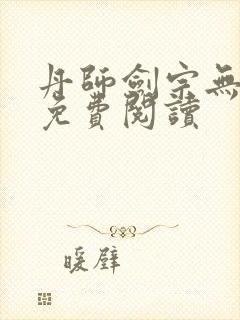 丹師劍宗無
免費閱讀
暖壁